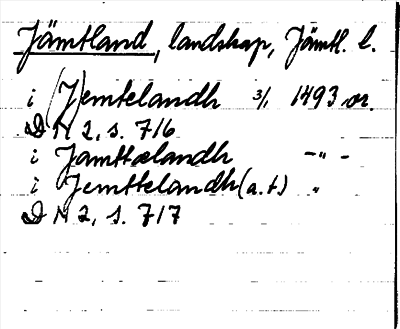 Jämtland, landskap, Jämtl. l.
i (J)emtelandh 3/1 1493 or.
DN 2, s. 716
i Jamttælandh -"-
i Jemttelandh (a.t) "
DN 2, s. 717